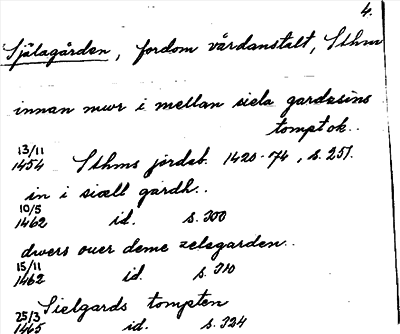 4.
Själagården, fordom vårdanstalt, Sthm
innan mur i mellan siela gardzsins
tompt ok..
13/11
1454 Sthms jordeb. 1420-74, s. 251.
in i siæll gardh..
10/5
1462 id. s. 300
dwers ouer deme zelegarden..
15/11
1462 id. s. 310
Sielgards tompten
25/3
1465 id. s. 324